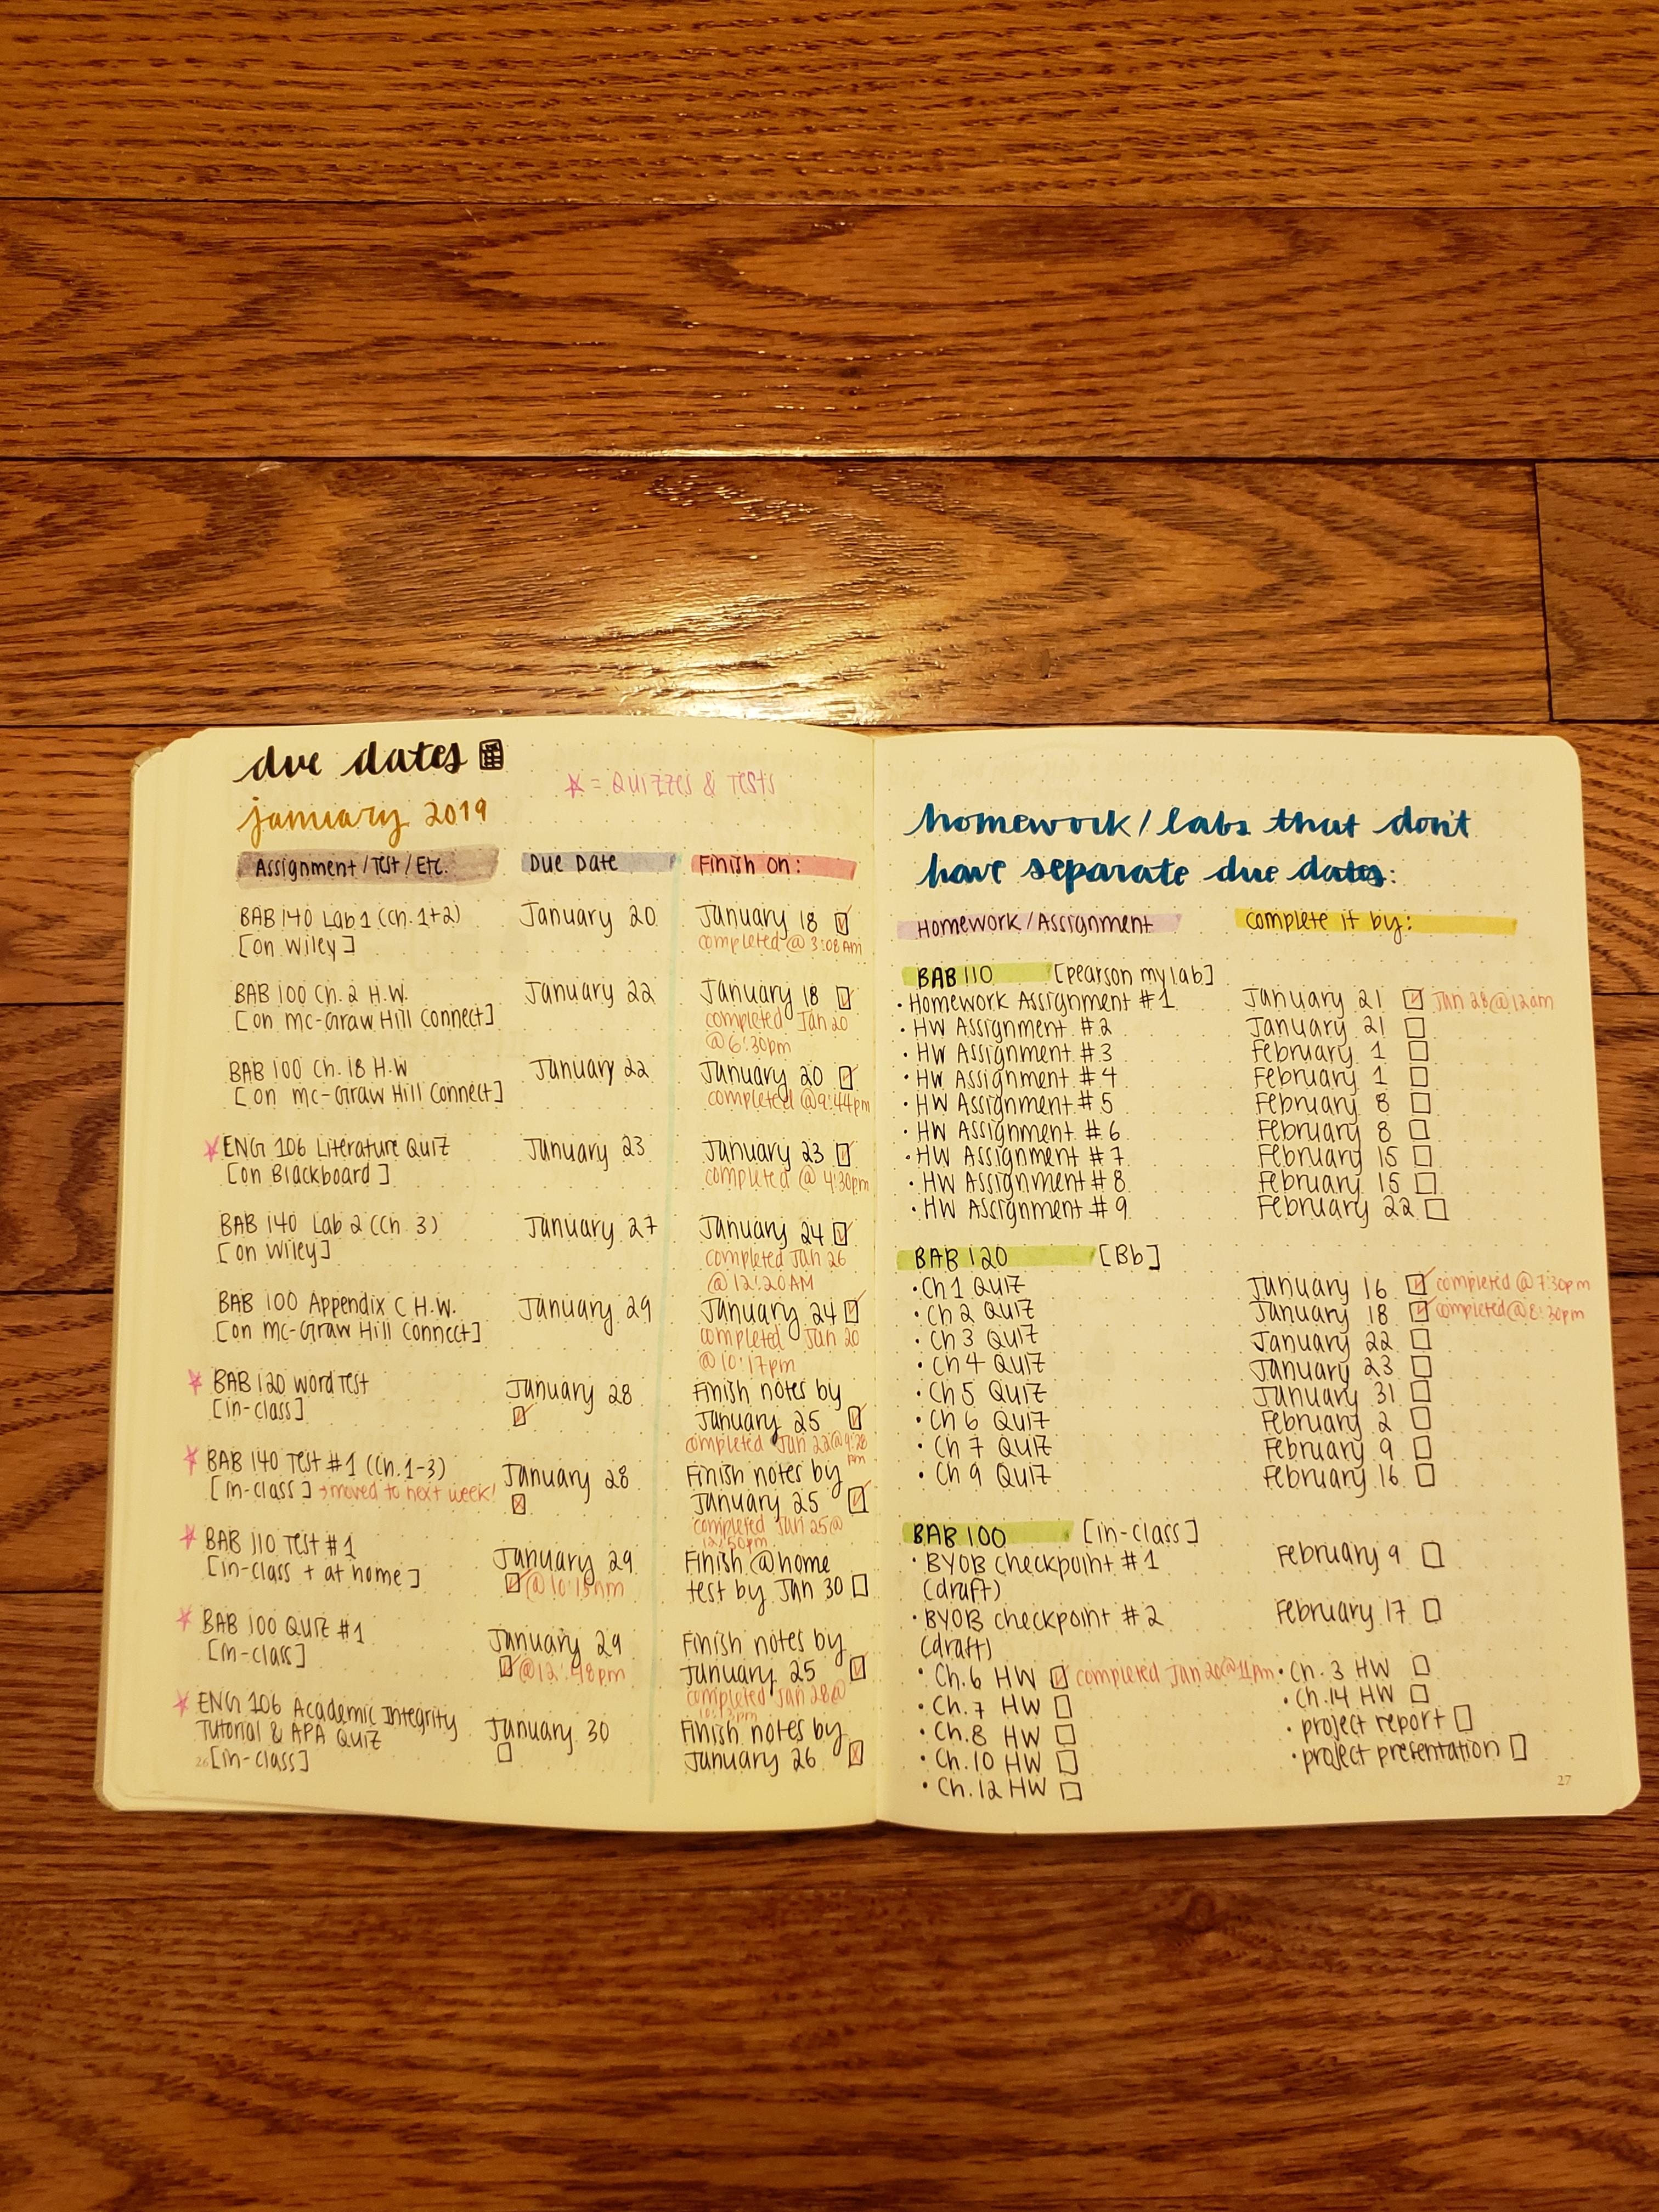 due dates
☆ = Quizzes & Tests
january 2019
Assignment / Test / Etc. Due Date Finish on:
BAB 140 Lab 1 (Ch. 1+2) January 20 January 18
[on Wiley] completed @ 3:08 AM
BAB 100 Ch. 2 H.W. January 22 January 18
[on Mc-Graw Hill Connect] completed Jan 20
@ 6:30pm
BAB 100 Ch. 18 H.W January 22 January 20
[on Mc-Graw Hill Connect] completed @ 9:44pm
ENG 106 Literature Quiz January 23 January 23
[on Blackboard] completed @ 4:30pm
BAB 140 Lab 2 (Ch. 3) January 27 January 24
[on Wiley] completed Jan 26
@ 12:20AM
BAB 100 Appendix C H.W. January 29 January 24
[on Mc-Graw Hill Connect] completed Jan 20
@ 10:17pm
BAB 120 Word Test January 28 Finish notes by
[in-class] January 25
completed Jan 22 @ 9:28
pm
BAB 140 Test #1 (Ch. 1-3) January 28 Finish notes by
[in-class] → moved to next week! January 25
completed Jan 25 @
12:50pm
BAB 110 Test #1 January 29 Finish @ home
[in-class + at home] test by Jan 30
BAB 100 Quiz #1 January 29 Finish notes by
[in-class] @ 12:48pm January 25
completed Jan 28 @
ENG 106 Academic Integrity
Tutorial & APA Quiz January 30 Finish notes by
[in-class] January 26
26
homework/labs that don't
have separate due dates:
Homework/Assignment complete it by:
BAB 110 [pearson my lab]
• Homework Assignment #1 January 21 Jan 28 @ 12am
• HW Assignment #2 January 21
• HW Assignment #3 February 1
• HW Assignment #4 February 1
• HW Assignment #5 February 8
• HW Assignment #6 February 8
• HW Assignment #7 February 15
• HW Assignment #8 February 15
• HW Assignment #9 February 22
BAB 120 [Bb]
• Ch 1 Quiz January 16 completed @ 7:30pm
• Ch 2 Quiz January 18 completed @ 8:30pm
• Ch 3 Quiz January 22
• Ch 4 Quiz January 23
• Ch 5 Quiz January 31
• Ch 6 Quiz February 2
• Ch 7 Quiz February 9
• Ch 9 Quiz February 16
BAB 100 [in-class]
• BYOB checkpoint #1 February 9
(draft)
• BYOB checkpoint #2 February 17
(draft)
• Ch. 6 HW completed Jan 20 @ 11pm • Ch. 3 HW
• Ch. 7 HW • Ch. 14 HW
• Ch. 8 HW • project report
• Ch. 10 HW • project presentation
• Ch. 12 HW
27